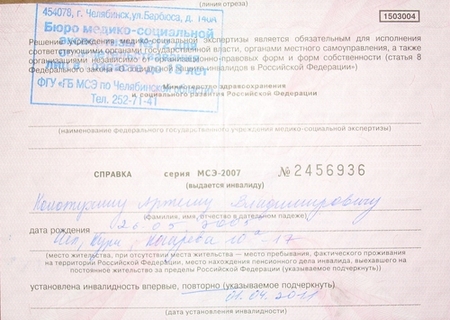 (линия отреза)
1503004
454078, г. Челябинск, ул. Барбюса, д. 140А
Бюро медико-социальной
Решение учреждения медико-социальной экспертизы является обязательным для исполнения
соответствующими органами государственной власти, органами местного самоуправления, а также
организациями независимо от организационно-правовых форм и форм собственности (статья 8
Федерального закона «О социальной защите инвалидов в Российской Федерации»)
Министерство здравоохранения
и социального развития Российской Федерации
ФГУ «ГБ МСЭ по Челябинской
Тел. 252-71-41
(наименование федерального государственного учреждения медико-социальной экспертизы)
СПРАВКА серия МСЭ-2007 № 2456936
(выдается инвалиду)
Артему Владимировичу
(фамилия, имя, отчество в дательном падеже)
дата рождения 26.05.2005
(место жительства, при отсутствии места жительства — место пребывания, фактического проживания
на территории Российской Федерации, место нахождения пенсионного дела инвалида, выехавшего на
постоянное жительство за пределы Российской Федерации (указываемое подчеркнуть))
установлена инвалидность впервые, повторно (указываемое подчеркнуть)
01.04.2011
(дата установления инвалидности)